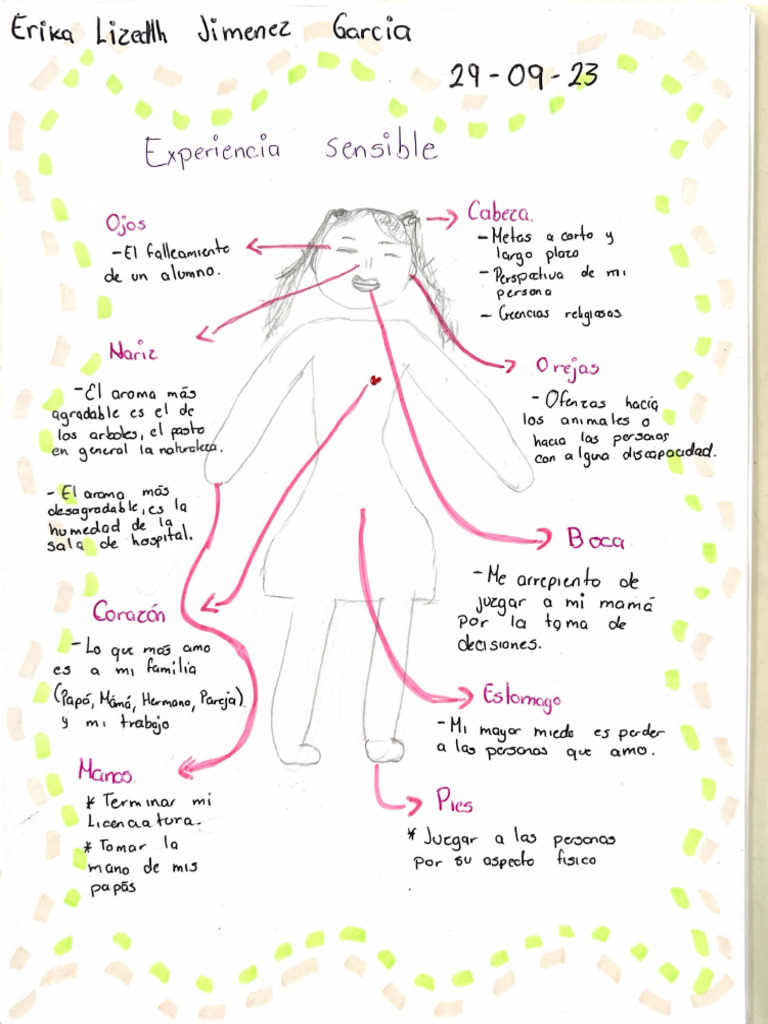 Erika Lizedth Jimenez Garcia
29-09-23
Experiencia sensible
Ojos
-El falleamiento
de un alumno.
Cabeza.
- Metas a corto y
largo plazo
- Perspectiva de mi
persona
- Creencias religiosas
Nariz
-El aroma más
agradable es el de
los arboles, el pasto
en general la naturaleza.
- El aroma más
desagradable, es la
humedad de la
sala de hospital.
Orejas
- Ofenzas hacía
los animales o
hacia las personas
con alguna discapacidad.
Boca
-Me arrepiento de
juzgar a mi mamá
por la toma de
decisiones.
Corazón
- Lo que mas amo
es a mi familia
(Papá, Mámá, Hermano, Pareja).
y mi trabajo
Estomago
-Mi mayor miedo es perder
a las personas que amo.
Manos
* Terminar mi
Licenciatura.
* Tomar la
mano de mis
papás
Pies
* Juzgar a las personas
por su aspecto fisico